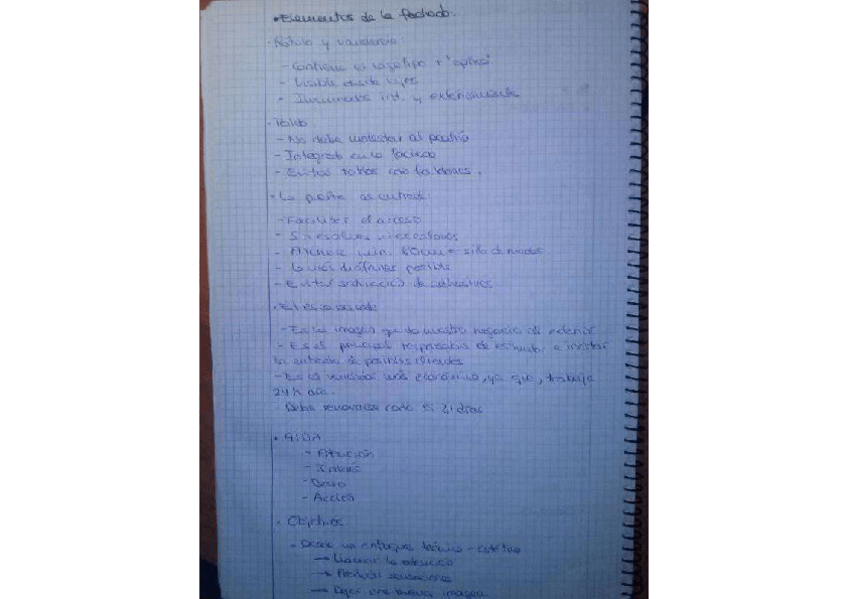 • Elementos de la fachada:
- Rótulo y banderola:
- Contiene el logotipo + "óptica"
- Visible desde lejos
- Iluminados int. y exteriormente
- Toldo
- No debe molestar al peatón
- Integrado en la fachada
- Evitar toldos con faldones.
- La puerta de entrada:
- Facilitar el acceso
- Sin escalones
- Anchura min. 80cm = silla de ruedas
- Lo más diáfana posible
- Evitar saturación de adhesivos
- El escaparate
- Es la imagen que da nuestro negocio al exterior
- Es el principal responsable de estimular e incitar
la entrada de posibles clientes
- Es el vendedor más económico, ya que, trabaja
24h día.
- Debe renovarse cada 15-21 días
• AIDA
- Atención
- Interés
- Deseo
- Acción
• Objetivos
- Desde un enfoque técnico-estético
→ Llamar la atención
→ Producir sensaciones
→ Dejar una buena imagen.